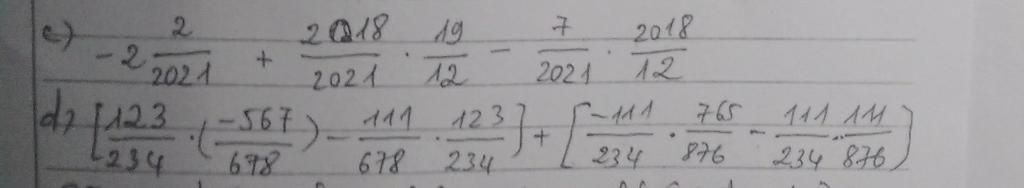 c) -2 2/2021 + 2018/2021 · 19/12 - 7/2021 · 2018/12
d) [123/234 · (-567/678) - 111/678 · 123/234] + [-111/234 · 765/876 - 111/234 · 111/876)